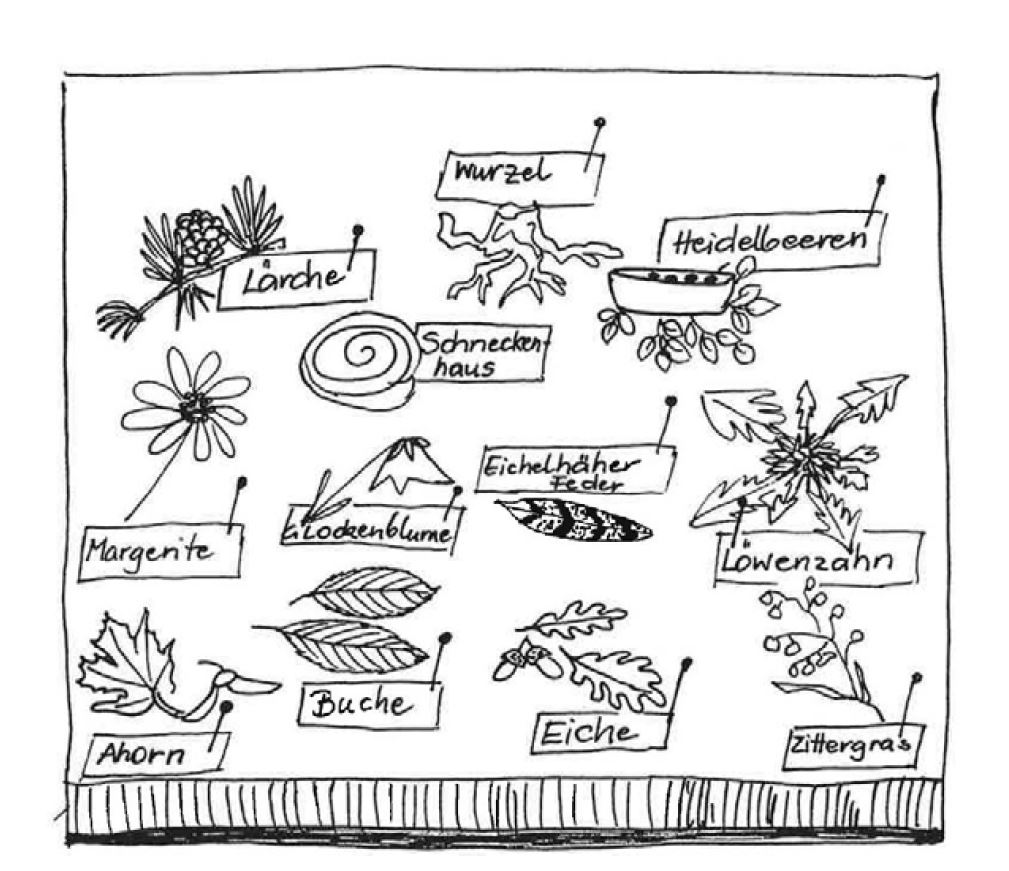 Wurzel
Heidelbeeren
Lärche
Schnecken-
haus
Eichelhäher
Feder
Glockenblume
Margerite
Löwenzahn
Buche
Eiche
Ahorn
Zittergras